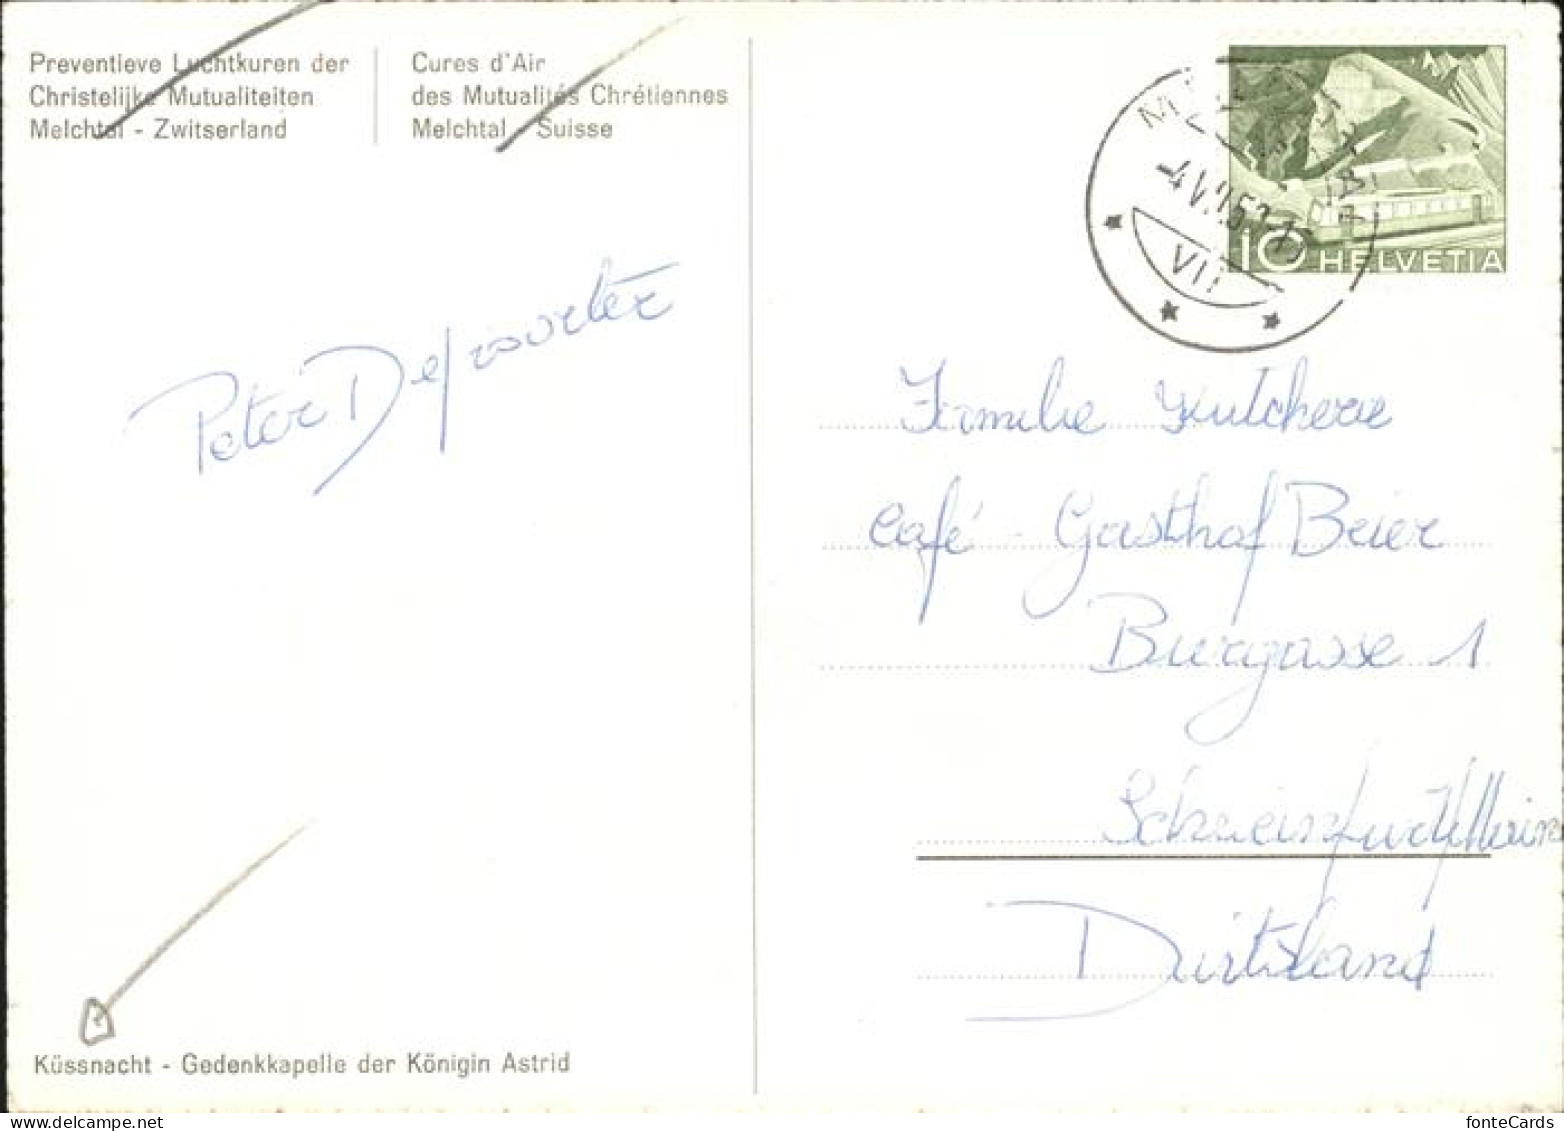 Preventieve Luchtkuren der
Christelijke Mutualiteiten
Melchtal - Zwitserland
Cures d'Air
des Mutualités Chrétiennes
Melchtal - Suisse
10 HELVETIA
VII
Peter
Familie
Café - Gasthof Beier
Burgasse 1
Schweinfurt/Main
Duitsland
Küssnacht - Gedenkkapelle der Königin Astrid
delcampe.net
fonteCards